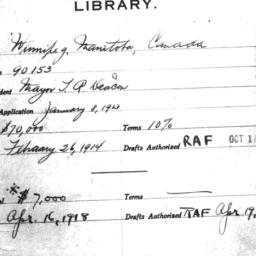 LIBRARY.
Winnipeg, Manitoba, Canada
90153
dent Mayor T. R. Deacon
Application January 8, 19
$70,000 Terms 10%
February 26, 1914 Drafts Authorized RAF OCT 1
* $7,000 Terms
Apr. 16, 1918 Drafts Authorized RAF Apr 19,